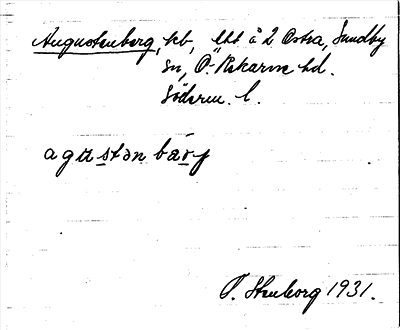 Augustenberg, hb, lht å 2 Östra, Sundby
sn, Ö.-Rekarne hd.
Söderm. l.
agustən bærj
T. Stenborg 1931.